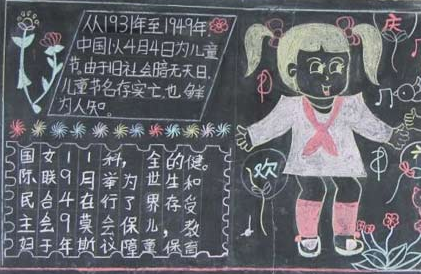 从1931年至1949年,
中国以4月4日为儿童
节。由于旧社会暗无天日,
儿童节名存实亡也鲜
为人知。
国际民主妇
女联合会于
1949年
1月在莫斯
科举行会议
,为了保障
全世界儿童
的生存,保
健和受教育
。
欢
庆